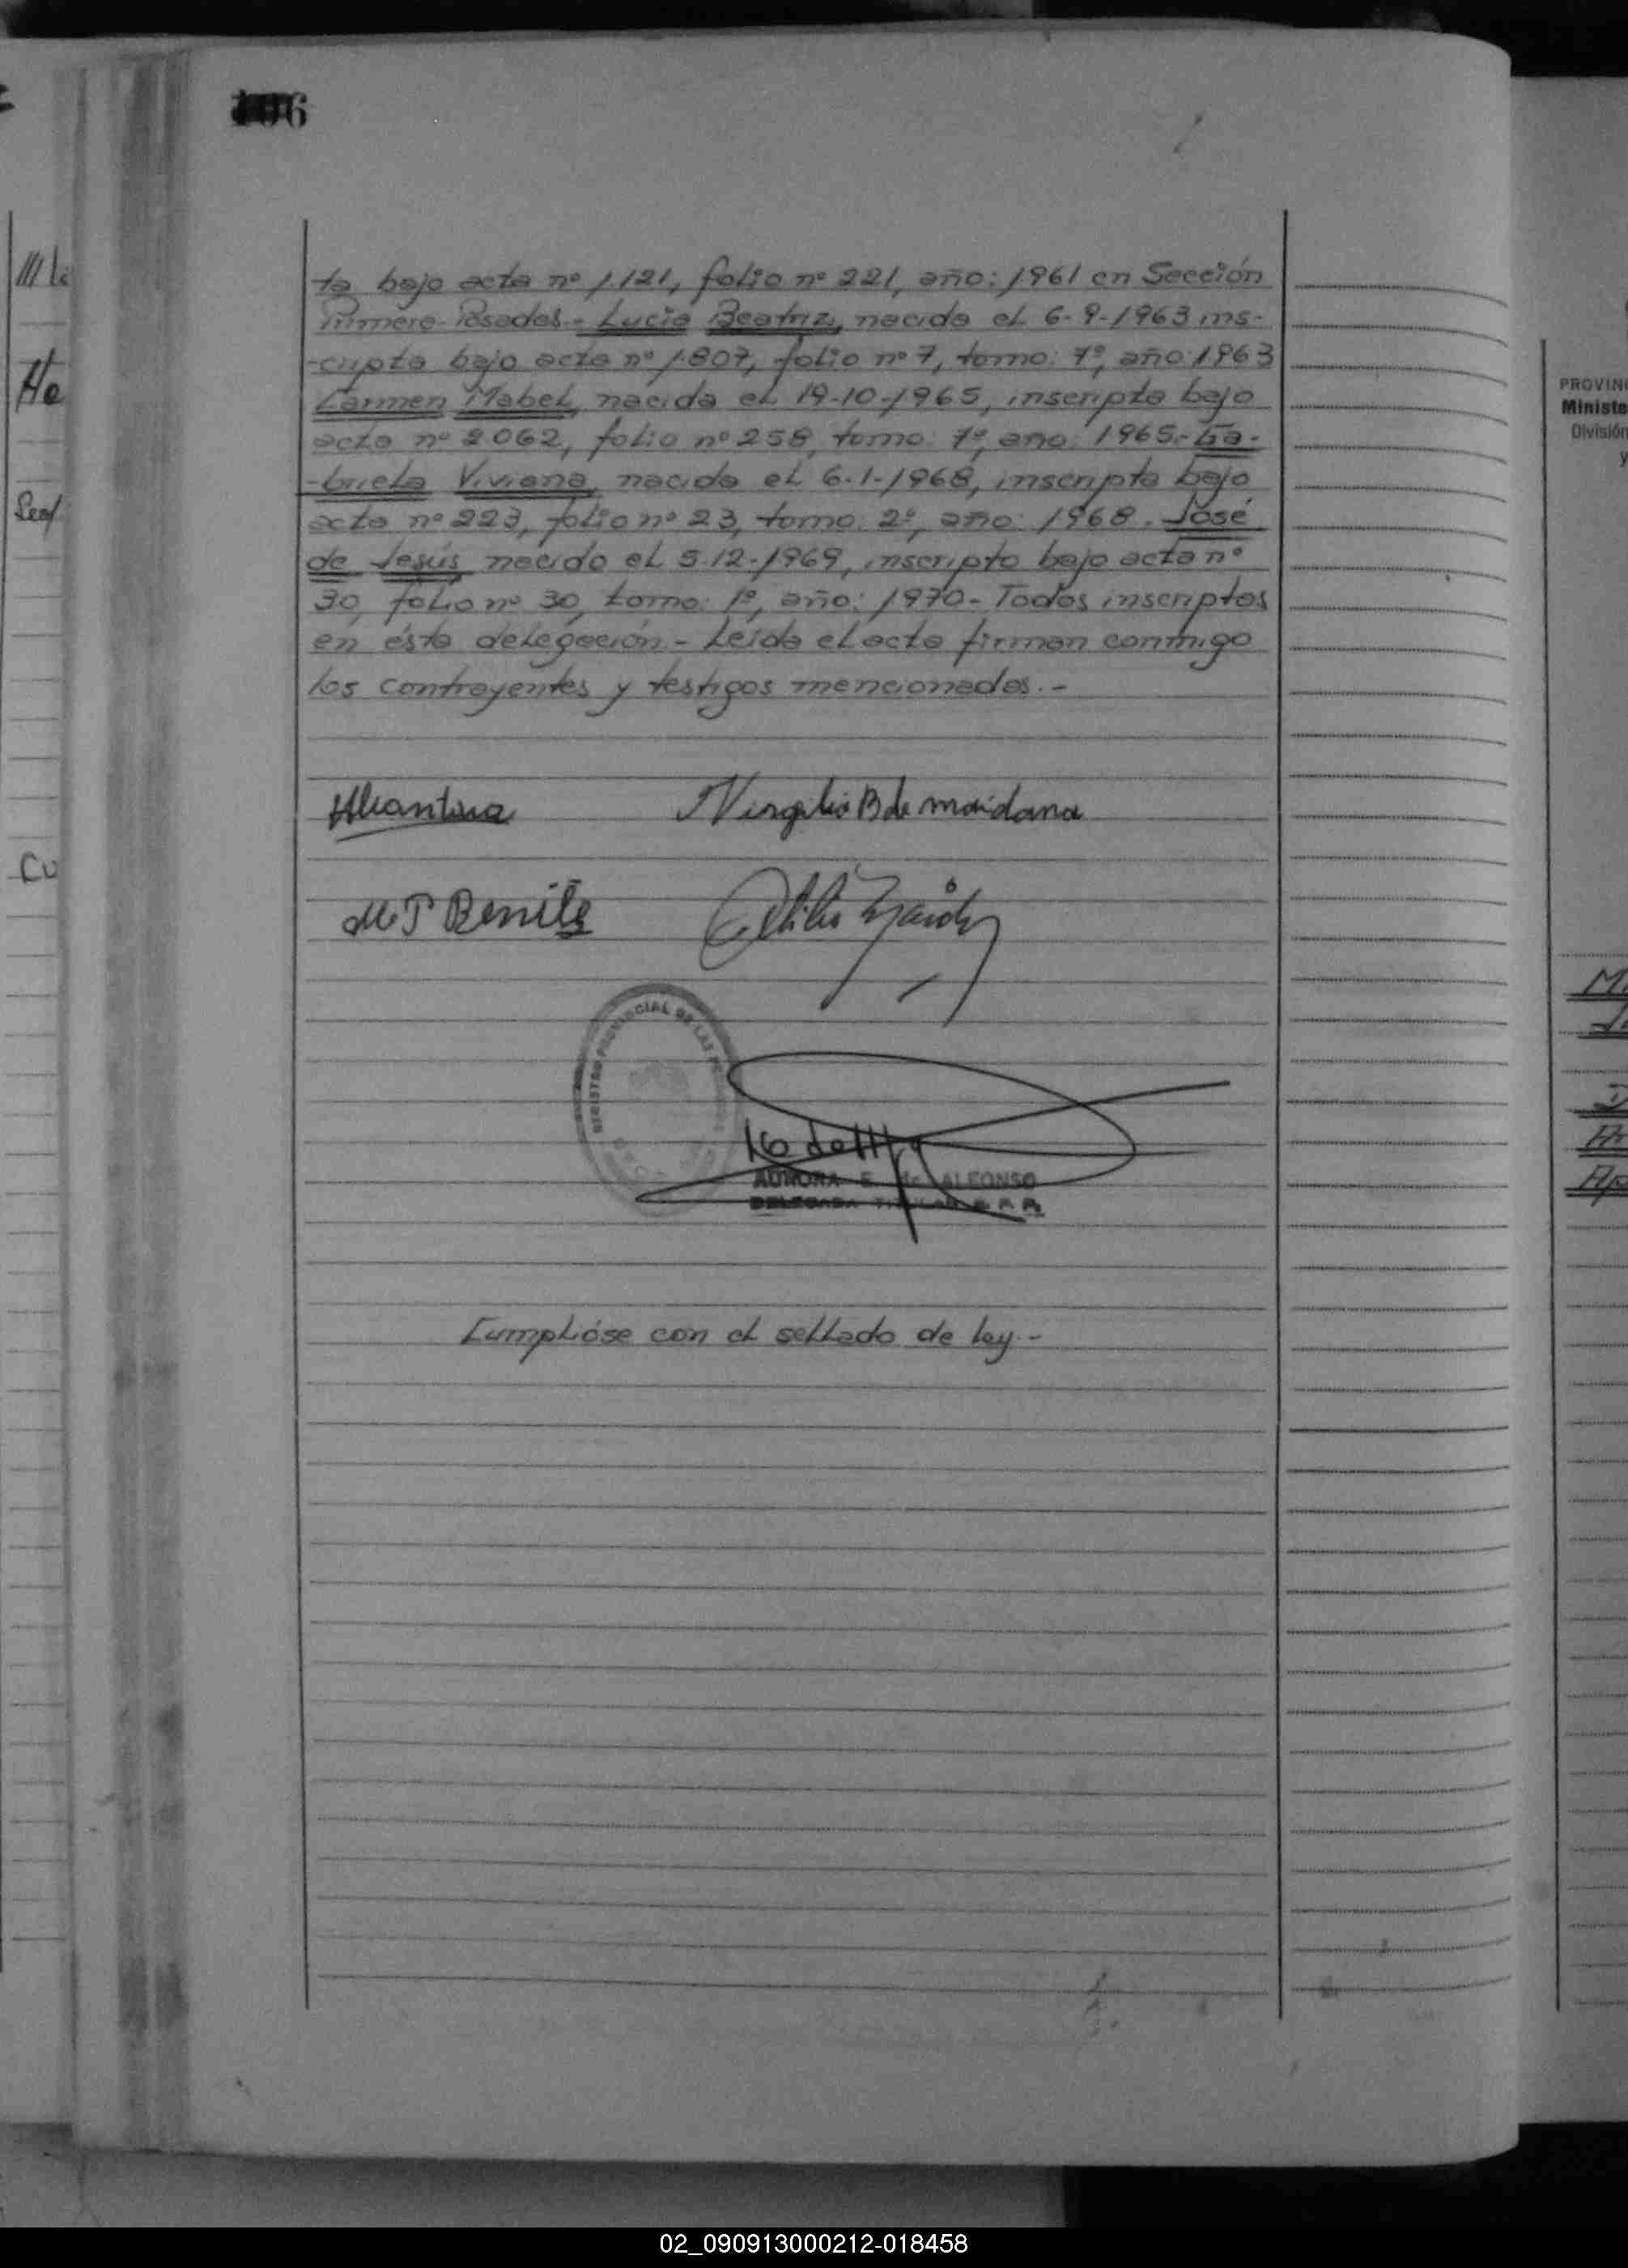 106
ta bajo acta nº 1.121, folio nº 221, año: 1961 en Sección
Primera-Posadas.- Lucia Beatriz, nacida el 6-9-1963 ins-
-cripta bajo acta nº 1.807, folio nº 7, tomo: 7º, año: 1963
Carmen Mabel, nacida el 19-10-1965, inscripta bajo
acta nº 2062, folio nº 258, tomo: 7º, año: 1965.- Ga-
-briela Viviana, nacida el 6-1-1968, inscripta bajo
acta nº 223, folio nº 23, tomo: 2º, año: 1968. José
de Jesús nacido el 5-12-1969, inscripto bajo acta nº
30, folio nº 30, tomo: 1º, año: 1970- Todos inscriptos
en ésta delegación.- Leída el acta firman conmigo
los contrayentes y testigos mencionados.-
Alcantara Virgilia B de maidana
M T Benitez
REGISTRO PROVINCIAL DE LAS
AURORA E. de ALFONSO
DELEGADA TITULAR R. P. P.
Cumplióse con el sellado de ley.-
III
He
Cu
PROVIN
Ministe
División
y
M
D
Ap
02_090913000212-018458